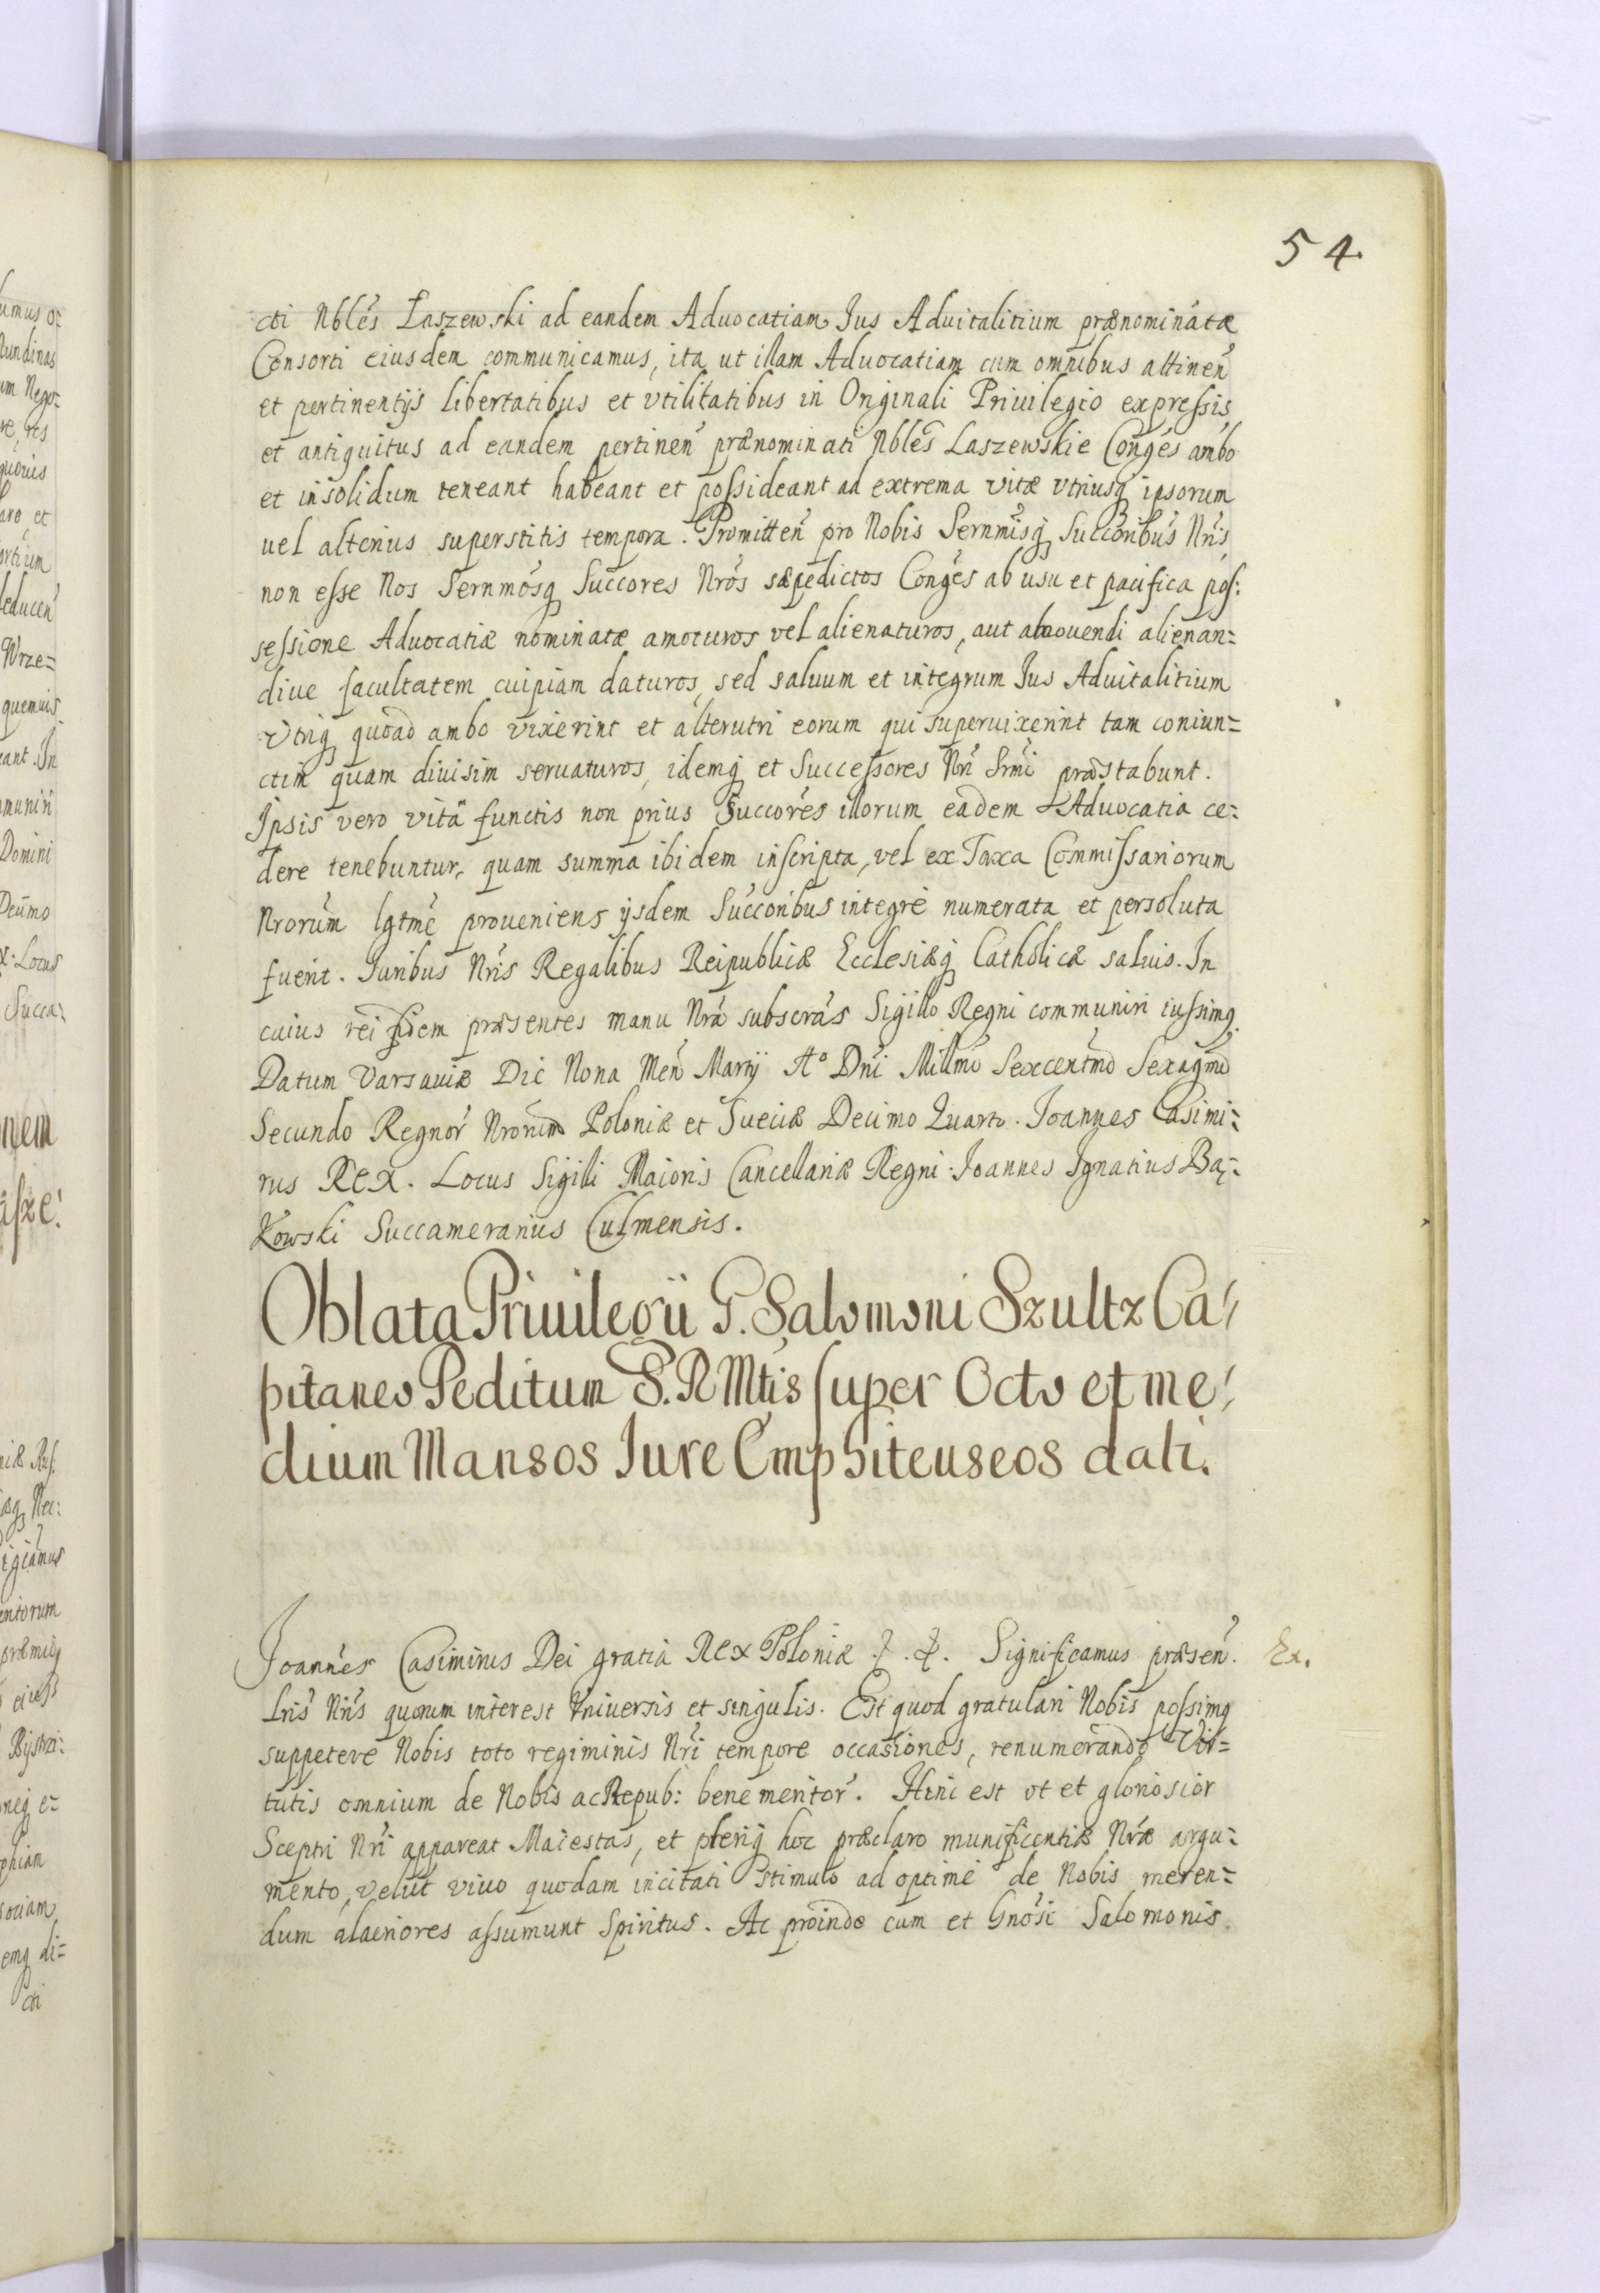 54.
cti Nbles Łaszewski ad eandem Aduocatiam Ius Aduitalitium prænominatæ
Consorti eiusdem communicamus, ita ut illam Aduocatiam cum omnibus attinen
et pertinentijs libertatibus et vtilitatibus in Originali Priuilegio expreſsis
et antiquitus ad eandem pertinen prænominati Nbles Laszewskie Conges ambo
et insolidum teneant habeant et poſsideant ad extrema vitæ vtriusq ipsorum
uel alterius superstitis tempora. Promitten pro Nobis Sernmisq Succoribus Nris
non eſse Nos Sernmosq Succores Nros sæpedictos Conges ab usu et pacifica poſ:
seſsione Aduocatiæ nominatæ amoturos vel alienaturos, aut amouendi alienan=
diue facultatem cuipiam daturos, sed saluum et integrum Ius Aduitalitium
Vtriq quoad ambo vixerint et alterutri eorum qui superuixerint tam coniun=
ctim quam diuisim seruaturos, idemq et Succeſsores Nri Srmi præstabunt.
Ipsis vero vitâ functis non prius Succores illorum eadem Aduocatia ce=
dere tenebuntur, quam summa ibidem inscripta, vel ex Taxa Commiſsariorum
Nrorum lgtme proueniens ijsdem Succoribus integre numerata et persoluta
fuerit. Iuribus Nris Regalibus Reipublicæ Ecclesiæq Catholicæ saluis. In
cuius rei fidem præsentes manu Nra subscras Sigillo Regni communiri iuſsimq
Datum Varsauiæ Die Nona Men Martij Aº Dni Millmo Sexcentmo Sexagmo
Secundo Regnor Nrorum Poloniæ et Sueciæ Decimo Quarto. Joannes Casimi=
rus Rex. Locus Sigilli Maioris Cancellariæ Regni Joannes Ignatius Bą=
kowski Succamerarius Culmensis.
Oblata Priuilegii G. Salomoni Szultz Ca=
pitaneo Peditum S. R Mtis super Octo et me=
dium Mansos Iure Emphiteuseos dati.
Joannes Casimirus Dei gratia Rex Poloniæ &. &. Significamus præsen.
Ex.
Lris Nris quorum interest Vniuersis et singulis. Est quod gratulari Nobis poſsimq
suppetere Nobis toto regiminis Nri tempore occasiones, renumerando Vir=
tutis omnium de Nobis ac Repub: bene meritor. Hinc est vt et gloriosior
Sceptri Nri appareat Maiestas, et pleriq hoc præclaro munificentiæ Nræ argu=
mento, velut viuo quodam incitati Stimulo ad optime de Nobis meren=
dum alacriores aſsumunt Spiritus. Ac proinde cum et Gnosi Salomonis